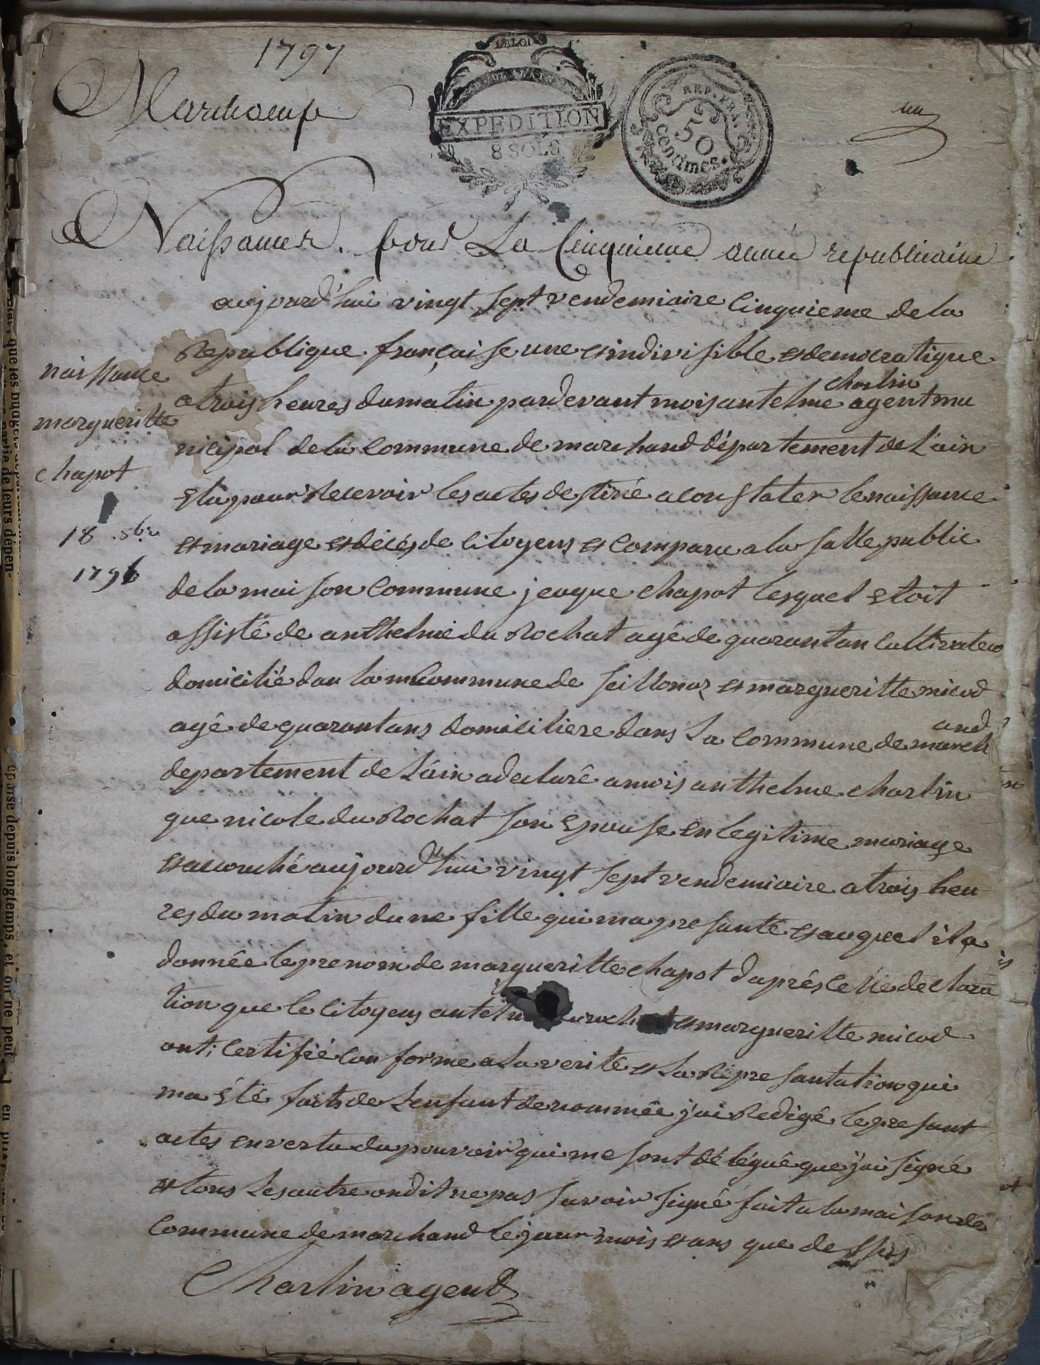 1797
Marchamp
LA LOI
EXPEDITION
8 SOLS
REP. FRA.
50
centimes.
un
Naissances. pour La Cinquieme année republicaine
aujourd'hui vingt sept vendemiaire Cinquieme de la
Republique française une et indivisible et democratique
charlin
a trois heures du matin pardevant mois antelme agent mu
nicipal de la Commune de marchand département de L'ain
Elu pour Recevoir les actes destiné a constater le naissance
et mariage et décés de Citoyens et Comparu a la salle public
de la maison Commune jeaque chapot lesquel Etoit
assisté de anthelme du Rochat agé de quarantan Cultivateu
domicilié dan la mcommune de seillonaz et margueritte micod
agé de quarantans domiciliere dans La commune de march
and
departement de L'ain a declaré a mois anthelme charlin
que nicole du Rochat son Epouse en legitime mariage
et acouché aujourd'hui vingt sept vendemiaire a trois heu
res du matin dune fille qui ma presanté et auquel il a
donnée le prenom de margueritte chapot d'aprés cette declara
tion que le Citoyens antelm du rochat et margueritte micod
onti certifié Conforme a la verité et La Représantation qui
ma Eté faite de L'enfant denommée j'ai Redigé le presant
actes en vertu du pouvoir qui me sont délégué que j'ai signé
et tous Les autre on dit ne pas savoir signé fait a la maison de
Commune de marchand le jour mois et ans que dessus
Charlin agent
naissance
margueritte
chapot
18 8bre
1796
que les biens
partie de leurs dépen-
éparse depuis longtemps, et or ne peut